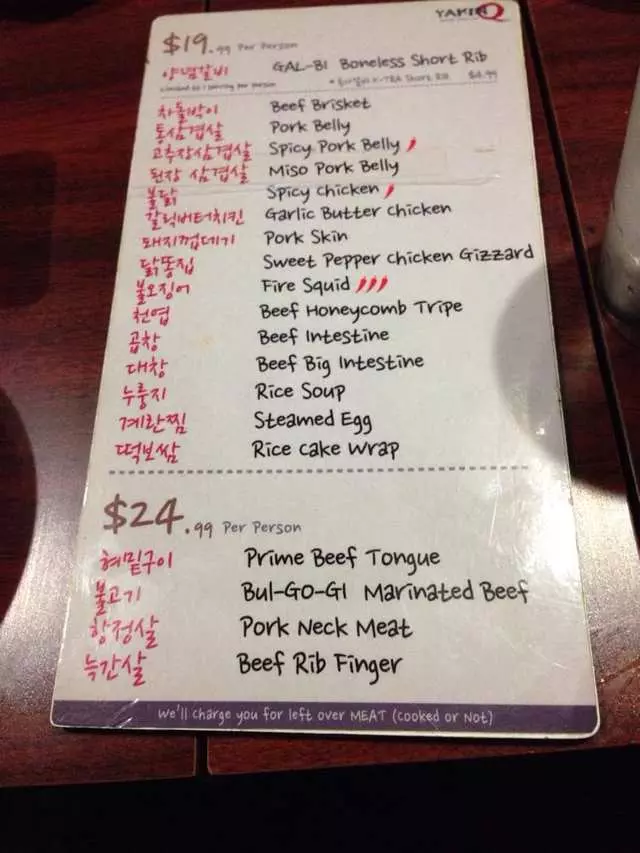 YAKINIQ
$19.99 Per Person
양념갈비 GAL-BI Boneless Short Rib
Limited to 1 serving per person X-TRA Short Rib $4.99
차돌박이 Beef Brisket
통삼겹살 Pork Belly
고추장삼겹살 Spicy Pork Belly
된장 삼겹살 Miso Pork Belly
불닭 Spicy Chicken
갈릭버터치킨 Garlic Butter Chicken
돼지껍데기 Pork Skin
닭똥집 Sweet Pepper Chicken Gizzard
불오징어 Fire Squid
천엽 Beef Honeycomb Tripe
곱창 Beef Intestine
대창 Beef Big Intestine
누룽지 Rice Soup
계란찜 Steamed Egg
떡보쌈 Rice Cake Wrap
$24.99 Per Person
혀밑구이 Prime Beef Tongue
불고기 Bul-GO-GI Marinated Beef
항정살 Pork Neck Meat
늑간살 Beef Rib Finger
We'll charge you for left over MEAT (Cooked or Not)